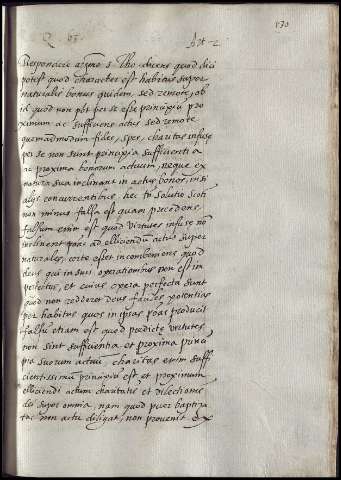 130
Q 63 Art. 2
Respondere argumento s. Tho. dicens quod dici
potest quod character est habitus super
naturalis bonus quidem, sed remote, ob
id quod non pot per se esse principiũ pro
ximum ac sufficiens actus sed remote
quemadmodum fides, spes, charitas infuse
per se non sunt principia sufficientia
ac proxima bonorum actuum, neque ex
natura sua inclinant in actus bonos, nisi
alijs concurrentibus. hec tñ solutio Scoti
non minus falsa est quam precedens
falsum enim est quod virtutes infuse nõ
inclinent ad elliciendũ actus super
naturales, certe esset inconveniens quod
deus qui in suis operationibus non est im
perfectus, et cuius opera perfecta sunt
quod non redderet deus potentias
per habitus quos in ipsas producit
falsũ etiam est quod predicte virtutes
non sint sufficientia et proxima princi
pia suorum actuũ, charitas enim suffi
cientissimũ principiũ est et proximum
elliciendi actum charitatis et dilectionis
dei super omnia, nam quod puer baptiza
tus non actu diligat, non provenit ex